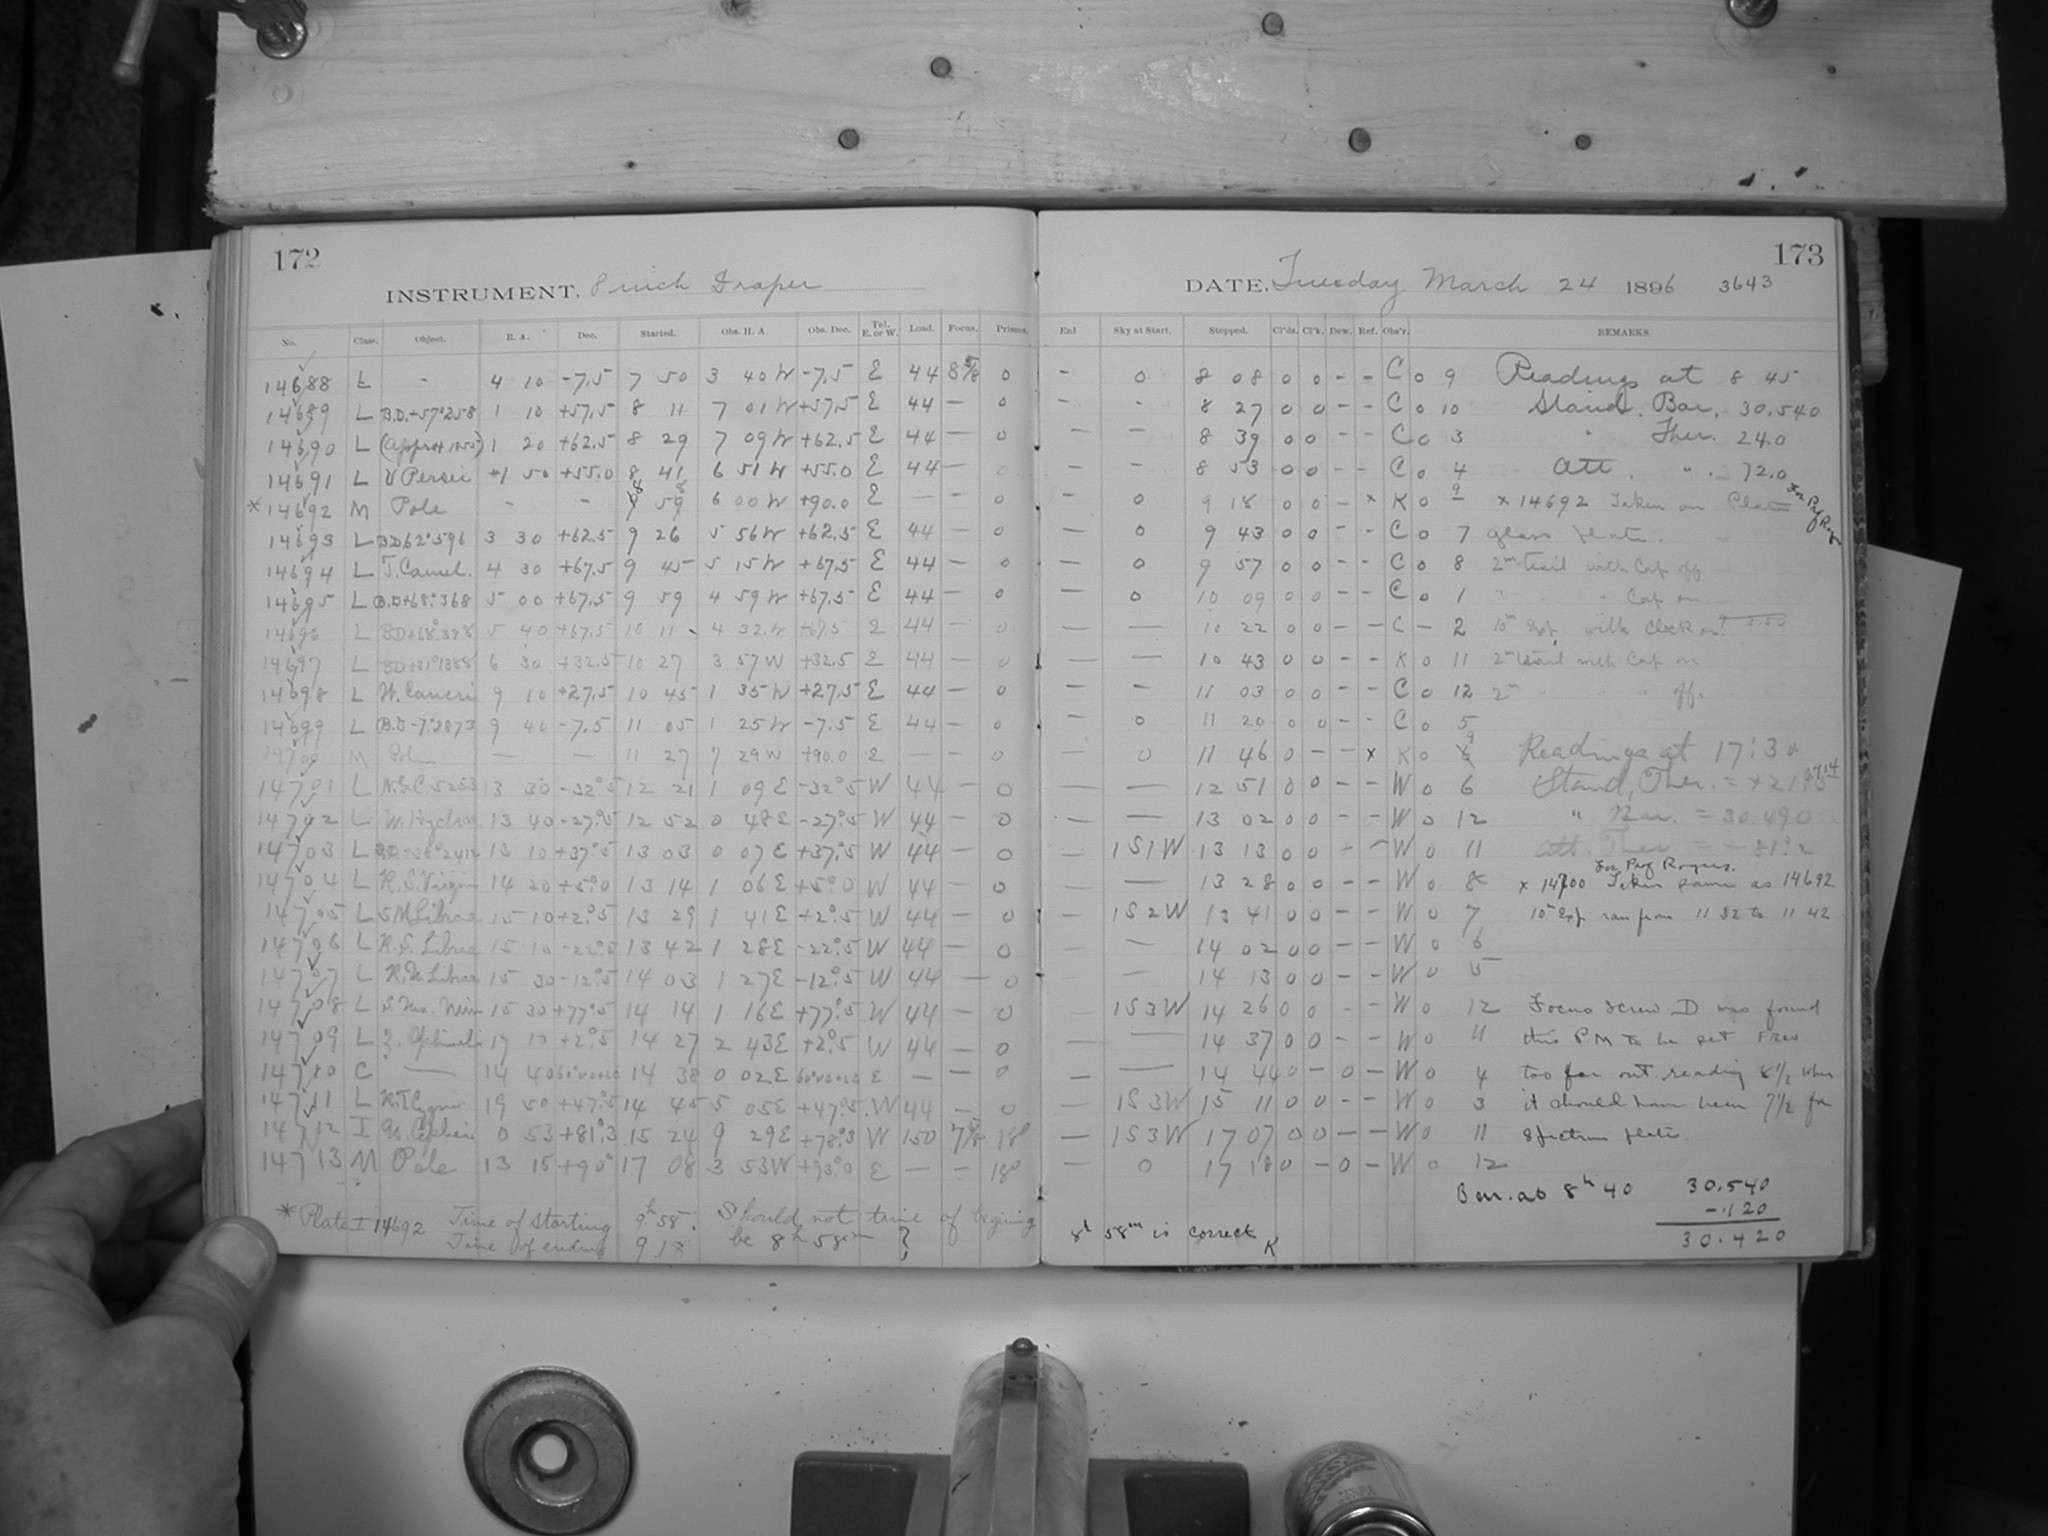 172
173
INSTRUMENT, 8 inch Draper
DATE, Tuesday March 24 1896 3643
No. Class. Object. R. A. Dec. Started. Obs. H. A. Obs. Dec. Tel. E. or W. Load. Focus. Prisms. End Sky at Start. Stopped. Cl'ds. Cl'k. Dew. Ref. Obs'r. REMARKS.
14688 L - 4 10 -7.5 7 50 3 40 W -7.5 E 44 8 5/8 0 - 0 8 08 0 0 - - C 0 9 Readings at 8 45
14689 L B.D.+57°258 1 10 +57.5 8 11 7 01 W +57.5 E 44 — 0 - - 8 27 0 0 - - C 0 10 Stand. Bar. 30.540
14690 L (approx 1855) 1 20 +62.5 8 29 7 09 W +62.5 E 44 — 0 — — 8 39 0 0 - - C 0 3 " Ther. 24.0
14691 L V Persei 1 50 +55.0 8 41 6 51 W +55.0 E 44 — - - 8 53 0 0 - - C 0 4 Att. " 72.0
* 14692 M Pole - - 8 58 6 00 W +90.0 E — - 0 — 0 9 18 0 0 - x K 0 9 x 14692 Taken on Plate For Prof Rogers
14693 L B.D.62°596 3 30 +62.5 9 26 5 56 W +62.5 E 44 — 0 — 0 9 43 0 0 - - C 0 7 glass plate.
14694 L T. Camel. 4 30 +67.5 9 45 5 15 W +67.5 E 44 — 0 — 0 9 57 0 0 - - C 0 8 2m trail with Cap off
14695 L B.D+68°368 5 00 +67.5 9 59 4 59 W +67.5 E 44 — 0 — 0 10 09 0 0 - - C 0 1 " " Cap on
14696 L BD+68°398 5 40 +67.5 10 11 4 32 W +67.5 E 44 — 0 — — 10 22 0 0 - - C - 2 10m Exp. with Clock on
14697 L BD+31°1388 6 30 +32.5 10 27 3 57 W +32.5 E 44 — 0 — — 10 43 0 0 - - K 0 11 2m trail with Cap on
14698 L W. Cancri 9 10 +27.5 10 45 1 35 W +27.5 E 44 — 0 — - 11 03 0 0 - - C 0 12 2m " " off.
14699 L B.D-7°2873 9 40 -7.5 11 05 1 25 W -7.5 E 44 — 0 — 0 11 20 0 0 - - C 0 5
14700 M Pole — — 11 27 7 29 W +90.0 E — 0 — 0 11 46 0 - - x K 0 9 Readings at 17:30
14701 L N.G.C. 5253 13 30 -32°5 12 21 1 09 E -32°5 W 44 — 0 — — 12 51 0 0 - - W 0 6 Stand, Ther. = +21.5
14702 L W. Hydrae 13 40 -27°5 12 52 0 48 E -27°5 W 44 — 0 — — 13 02 0 0 - - W 0 12 " Bar. = 30.490
14703 L 13 10 +37°5 13 03 0 07 E +37°5 W 44 — 0 — 1S1W 13 13 0 0 - - W 0 11 Att. Ther. = + 81°2
For Prof Rogers.
14704 L R.S. Virginis 14 20 +5°0 13 14 1 06 E +5°0 W 44 — 0 — — 13 28 0 0 - - W 0 8 x 14700 Taken same as 14692
14705 L S.M. Librae 15 10 +2°5 13 29 1 41 E +2°5 W 44 — 0 — 1S2W 13 41 0 0 - - W 0 7 10m Exp ran from 11 32 to 11 42
14706 L R.S. Librae 15 10 -22°5 13 42 1 28 E -22°5 W 44 — 0 — — 14 02 0 0 - - W 0 6
14707 L R.U. Librae 15 30 -12°5 14 03 1 27 E -12°5 W 44 — 0 — — 14 13 0 0 - - W 0 5
14708 L S. Urs. Min 15 30 +77°5 14 14 1 16 E +77°5 W 44 — 0 — 1S3W 14 26 0 0 - - W 0 12 Focus screw D was found
14709 L Z. Ophiuchi 17 10 +2°5 14 27 2 43 E +2°5 W 44 — 0 — — 14 37 0 0 - - W 0 11 this P.M to be set
14710 C — 14 40 14 38 0 02 E E — - 0 — — 14 44 0 - 0 - W 0 4 too far out. reading 8 1/2 when
14711 L R.T. Cygni 19 50 +47°5 14 45 5 05 E +47°5 W 44 — 0 — 1S3W 15 11 0 0 - - W 0 3 it should have been 7 1/2 for
14712 I U. Cephei 0 53 +81°3 15 24 9 29 E +78°3 W 150 7 5/8 18° — 1S3W 17 07 0 0 - - W 0 11 spectrum plate.
14713 M Pole 13 15 +90° 17 08 3 53 W +93°0 E — - 18° — 0 17 18 0 - 0 - W 0 12
Bar. at 8h 40 30.540
-.120
30.420
* Plate I 14692 Time of starting 9h 58. Should not time of begining 8h 58m is correct K
Time of ending 9.18 be 8h 58m }